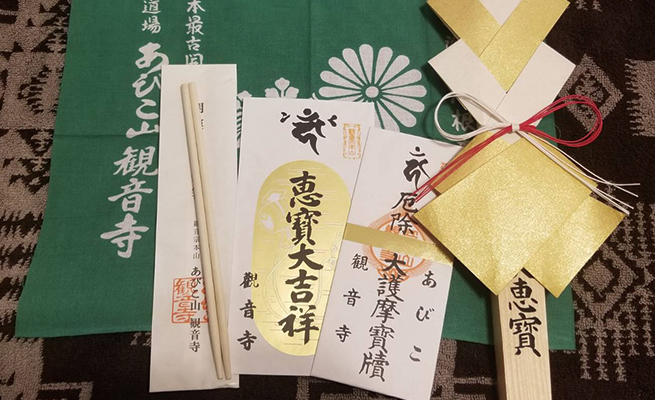 本最古
道場
あびこ山
観音寺
観音宗本山
あびこ山観音寺
恵寶大吉祥
觀音寺
厄除
大護摩寶牘
あびこ
観音寺
恵寶